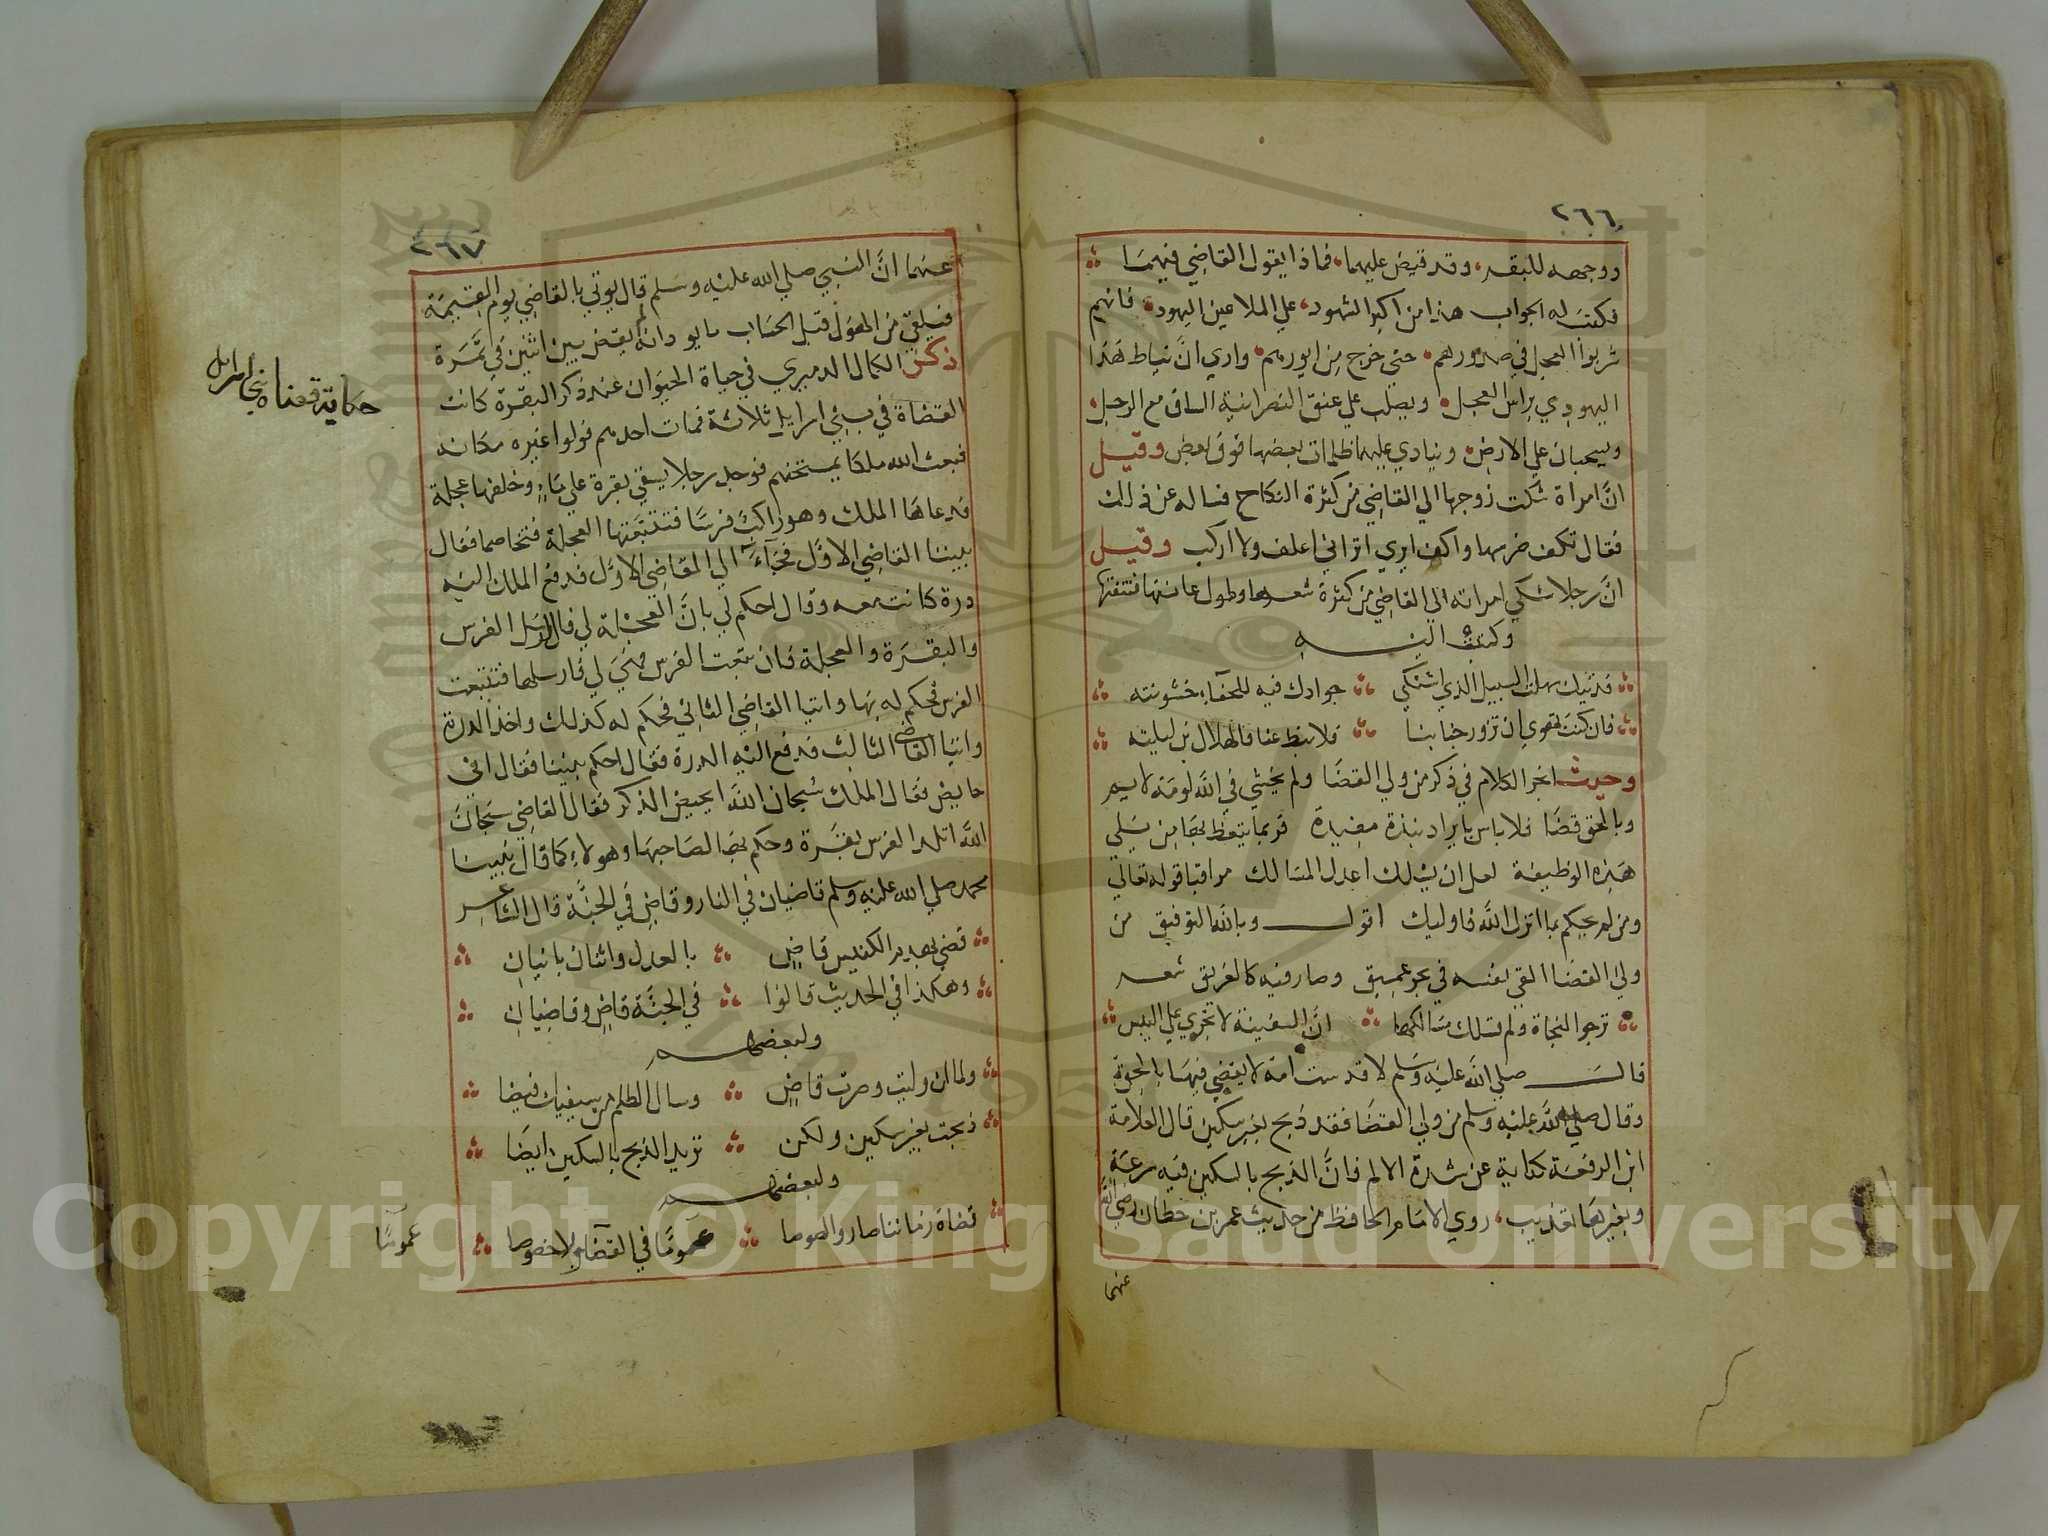 ٢٦٦
وروجهه للبقر، وقد قبض عليهما، فماذا يقول القاضي فيهما
فكتب له الجواب هذا من اكبر الشهود، على الملاعين اليهود، فانهم
شربوا العجل في صدورهم، حتى خرج من ايورهم، واري انَّ يناط هذا
اليهودي براس العجل، ويصلب علي عنق النصرانية الساق مع الرجل،
ويسحبان علي الارض، وينادي عليهما ظلمات بعضها فوق بعض وقيل
انَّ امراة شكت زوجها الي القاضي من كثرة النكاح فساله عن ذلك
فقال تكف ضرسها واكف ايري اتراني اعلف ولا اركب وقيل
انَّ رجلا شكي امراته الي القاضي من كثرة شعرها وطول عانتها فنتفتها
وكتبت اليه
فديتك سهلت السبيل الذي اشتكي جوادك فيه للحفاء خشونته
فان كنت تهوي ان تزور جنابنا فلا تبط عنا فالهلال بن ليلته
وحيث انجر الكلام في ذكر من ولي القضا ولم يخشي في الله لومة لايم
وبالحق قضا فلا باس بايراد نبذة مفيدة فربما يتعظ بها من يلي
هذه الوظيفة لعل ان يسلك اعدل المسالك مراقبا قوله تعالي
ومن لم يحكم بما انزل الله فاوليك اقول وبالله التوفيق من
ولي القضا القي نفسه في بحر عميق وصار فيه كالغريق شعر
ترجوا النجاة ولم تسلك مسالكها انَّ السفينة لا تجري علي اليبس
قال صلي الله عليه وسلم لا قدست امة لا يقضي فيها بالحق
وقال صلي الله عليه وسلم من ولي القضا فقد ذبح بغير سكين قال العلامة
ابن الرفعة كناية عن شدة الالم فانَّ الذبح بالسكين فيه سرعة
وبغيرها تعذيب، روي الامام الحافظ من حديث عمر بن حطان رضي الله
عنهما
٢٦٧
عنهما انَّ النبي صلي الله عليه وسلم قال يوتي بالقاضي يوم القيمة
فيلقي من الهول قبل الحساب ما يود انه لم يقض بين اثنين في تمرة
ذكر الكمال الدميري في حياة الحيوان عند ذكر البقرة كانت
القضاة في بني اسرايل ثلاثة فمات احدهم فولوا غيره مكانه
فبعث الله ملكا يمتحنهم فوجد رجلا يسقي بقرة علي ماء وخلفها عجلة
فدعاها الملك وهو راكب فرسا فتتبعتها العجلة فتخاصما فقال
بيننا القاضي الاول فجاء الي القاضي الاول فدفع الملك اليه
درة كانت معه وقال احكم لي بانَّ العجلة لي قال ارسل الفرس
والبقرة والعجلة فان تبعت الفرس فهي لي فارسلها فتتبعت
الفرس فحكم له بها واتيا القاضي الثاني فحكم له كذلك واخذ الدرة
واتيا القاضي الثالث فدفع اليه الدرة فقال احكم بيننا فقال اني
حايض فقال الملك سبحان الله ايحيض الذكر فقال القاضي سبحان
الله اتلد الفرس بقرة وحكم بها لصاحبها وهولاء كما قال نبينا
محمد صلي الله عليه وسلم قاضيان في النار وقاض في الجنة قال الشاعر
قضي بهدير الكنديس قاض بالعدل واثنان بانيان
وهكذا في الحديث قالوا في الجنة قاض وقاضيان
ولبعضهم
ولما ان وليت وصرت قاض وسال الظلم من سيفيك فيضا
ذبحت بغير سكين ولكن تريد الذبح بالسكين ايضا
ولبعضهم
قضاة زماننا صاروا لصوصا عموما في القضاء لا خصوصا
عموما
حكاية قضاة بني اسرايل
Copyright © King Saud University
1957